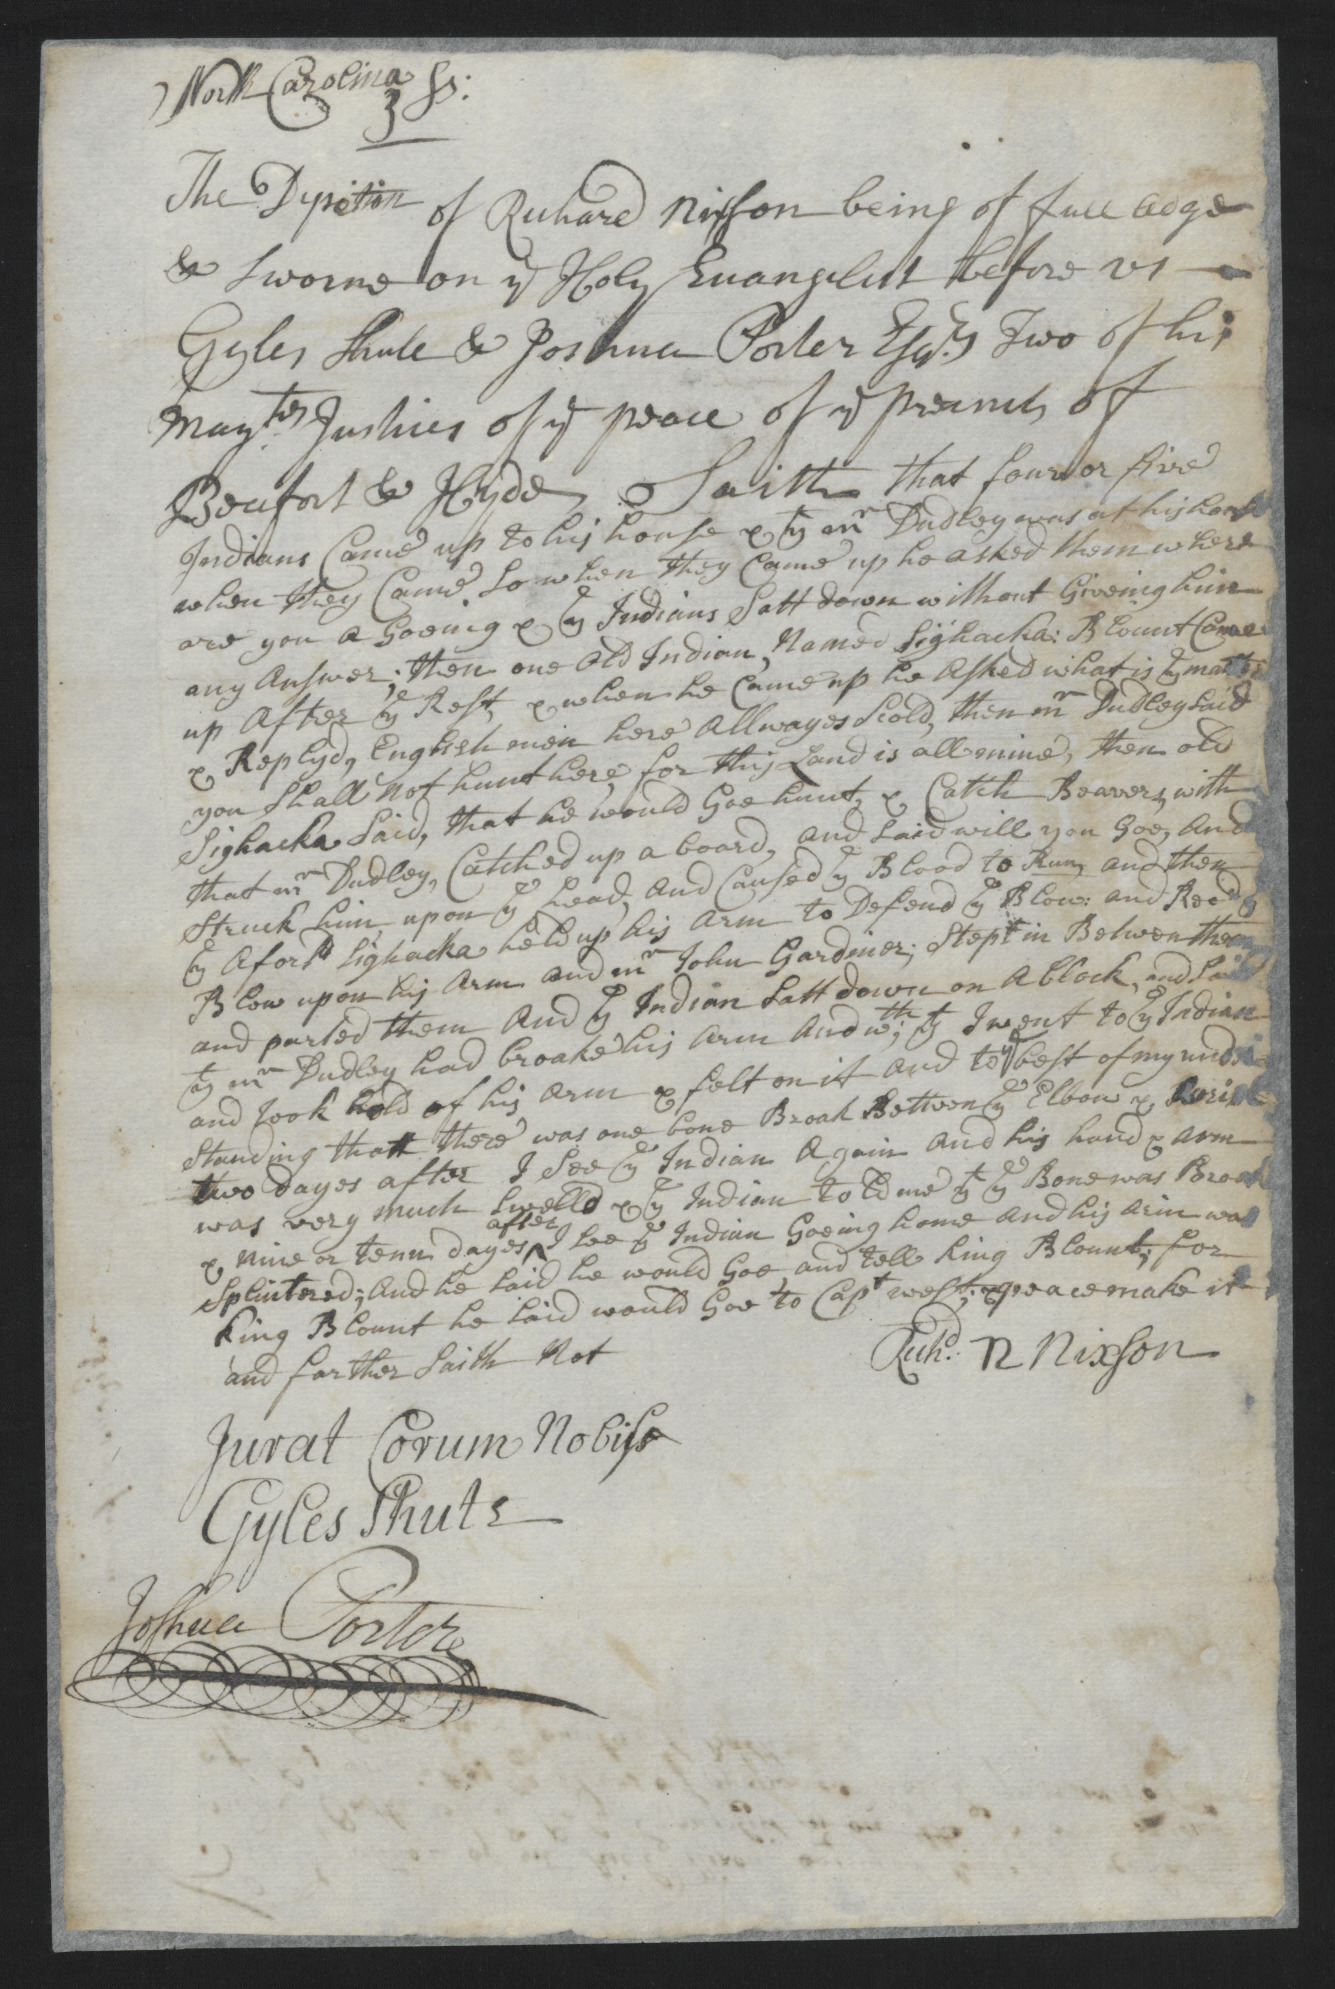 North Carolina ss:
The Depisition of Richard Nixson being of full adge
& Sworne on ye Holy Evangelist before us
Gyles Shute & Joshua Porter Esqrs Two of his
Maytes Justices of ye peace of ye precincts of
Beufort & Hyde Saith that four or five
Indians Came up to his house & yt mr Dudley was at his house
when they Came So when they Came up he asked them where
are you a Goeing & ye Indians Satt down without Giveing him
any Answer; then one old Indian, Named Sighacka: Blount Came
up After ye Rest, & when he Came up he Asked what is ye matter
& Replyd, English men here Allwayes Scold, then mr Dudley Said
you Shall not hunt here, for this Land is all mine, then old
Sighacka Said, that he would Goe hunt, & Catch Beavers, with
that mr Dudley, Catched up a board, and Said will you Goe, And
Struck him upon ye head, and Caused ye Blood to Run, and then
ye Aforsd Sighacka held up his Arm to Defend ye Blow: and Recd ye
Blow upon his Arm and mr John Gardiner; Stept in Between them
and parted them And ye Indian Satt down on A block, and Said
yt mr Dudley had broake his Arm And wth; yt I went to ye Indian
and took hold of his Arm & felt on it and to ye best of my under
Standing thatt there was one bone Broak Between ye Elbow & Wrist
two dayes after I See ye Indian Again and his hand & arm
was very much Swelld & ye Indian told me yt ye Bone was Broak
& nine or tenn dayes after I See ye Indian Goeing home and his arm was
Splintered; And he Said he would Goe and tell King Blount; for
King Blount he Said would Goe to Capt West; & peace make it
and farther Saith Not
Richd: R Nixson
Jurat Corum Nobise
Gyles Shute
Joshua Porter